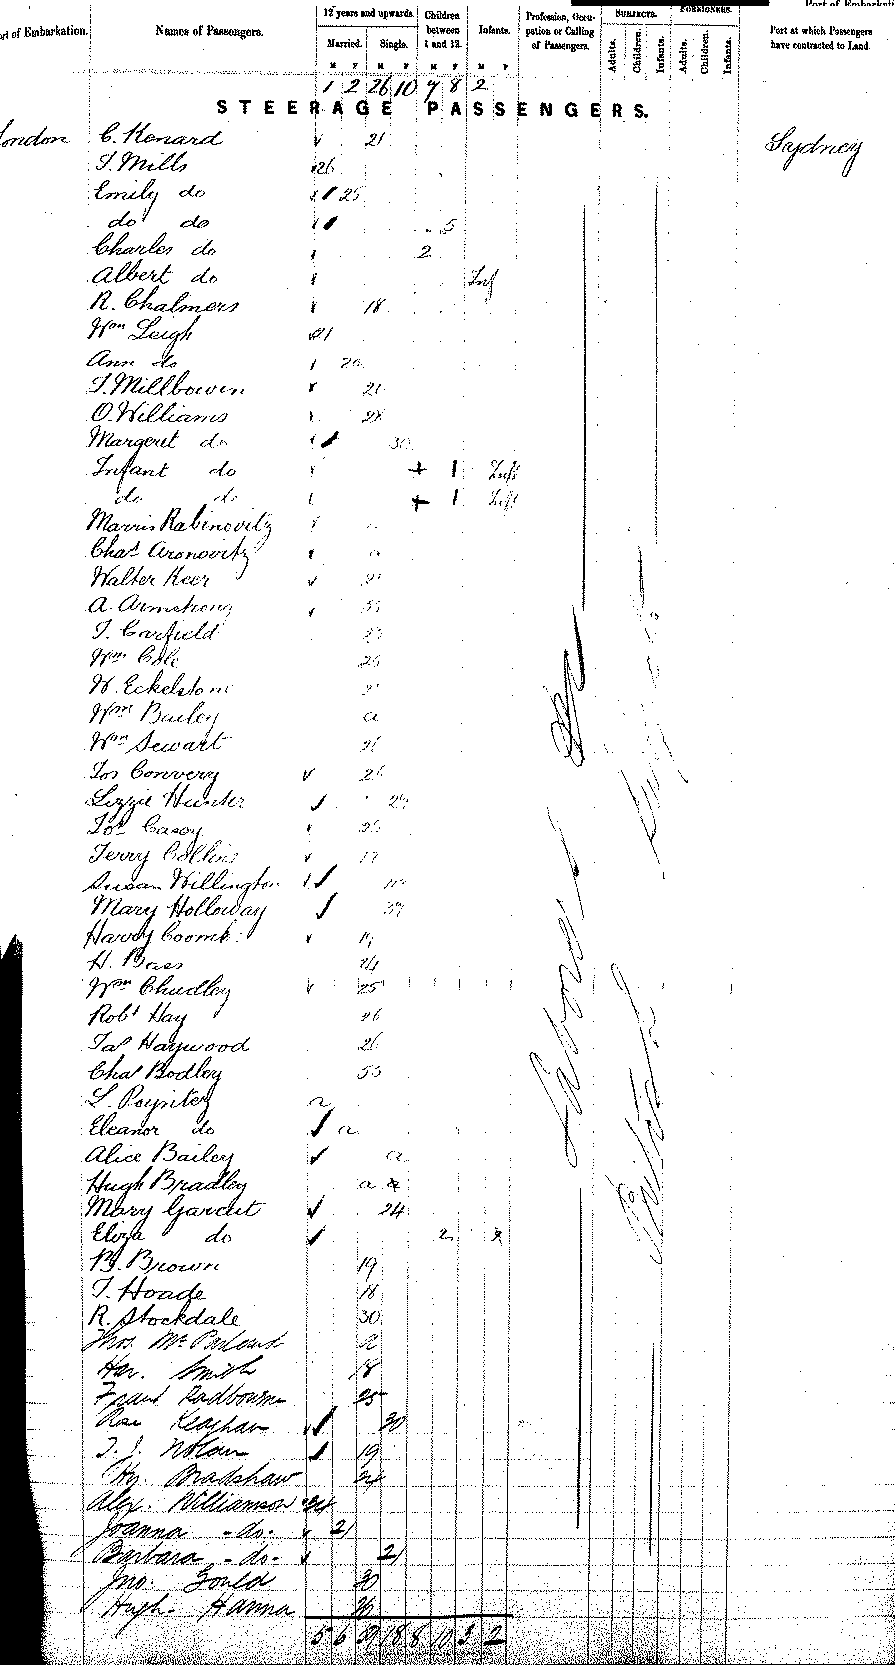 Port of Embarkation.
Names of Passengers.
12 years and upwards.
Married. Single.
M F M F
Children between 1 and 12.
M F
Infants.
M F
Profession, Occupation or Calling of Passengers.
SUBJECTS.
Adults. Children. Infants.
FOREIGNERS.
Adults. Children. Infants.
Port at which Passengers have contracted to Land.
1 2 26 10 7 8 2
STEERAGE PASSENGERS.
London C. Kenard 21 Sydney
T. Mills 26
Emily do 25
do do 5
Charles do 2
Albert do Inf
R. Chalmers 18
Wm Leigh 21
Ann do 20
T. Millbowen 21
O. Williams 28
Margeret do 30
Infant do + 1 Inft
do do + 1 Inft
Marris Rabinovitz
Chas Aronovitz a
Walter Keer 21
A. Armstrong
T. Garfield
Wm Cole 25
W. Eckelstone
Wm Bailey a
Wm Sewart 21
Jos Convery 21
Lizzie Hunter 29
Jos Casey 25
Jerry Collins 17
Susan Willington
Mary Holloway 37
Harry Coombs 19
H. Bass 24
Wm Chudley 25
Robt Hay 26
Jas Haywood 26
Chas Bodley 53
L. Poynter a
Eleanor do a
Alice Bailey a
Hugh Bradley a
Mary Gardet 24
Eliza do 2
B. Brown 19
T. Hoade 18
R. Stockdale 30
Thos. Mc
Har. Smith 18
Frank Radbourne 25
Rose 30
T. J. Nolan 19
Hy. Bradshaw 24
Alex. Williamson 24
Joanna -do- 21
Barbara -do- 21
Jno. Gould 30
Hugh Hanna 36
5 6 39 18 8 10 3 2
Labourers &c
British